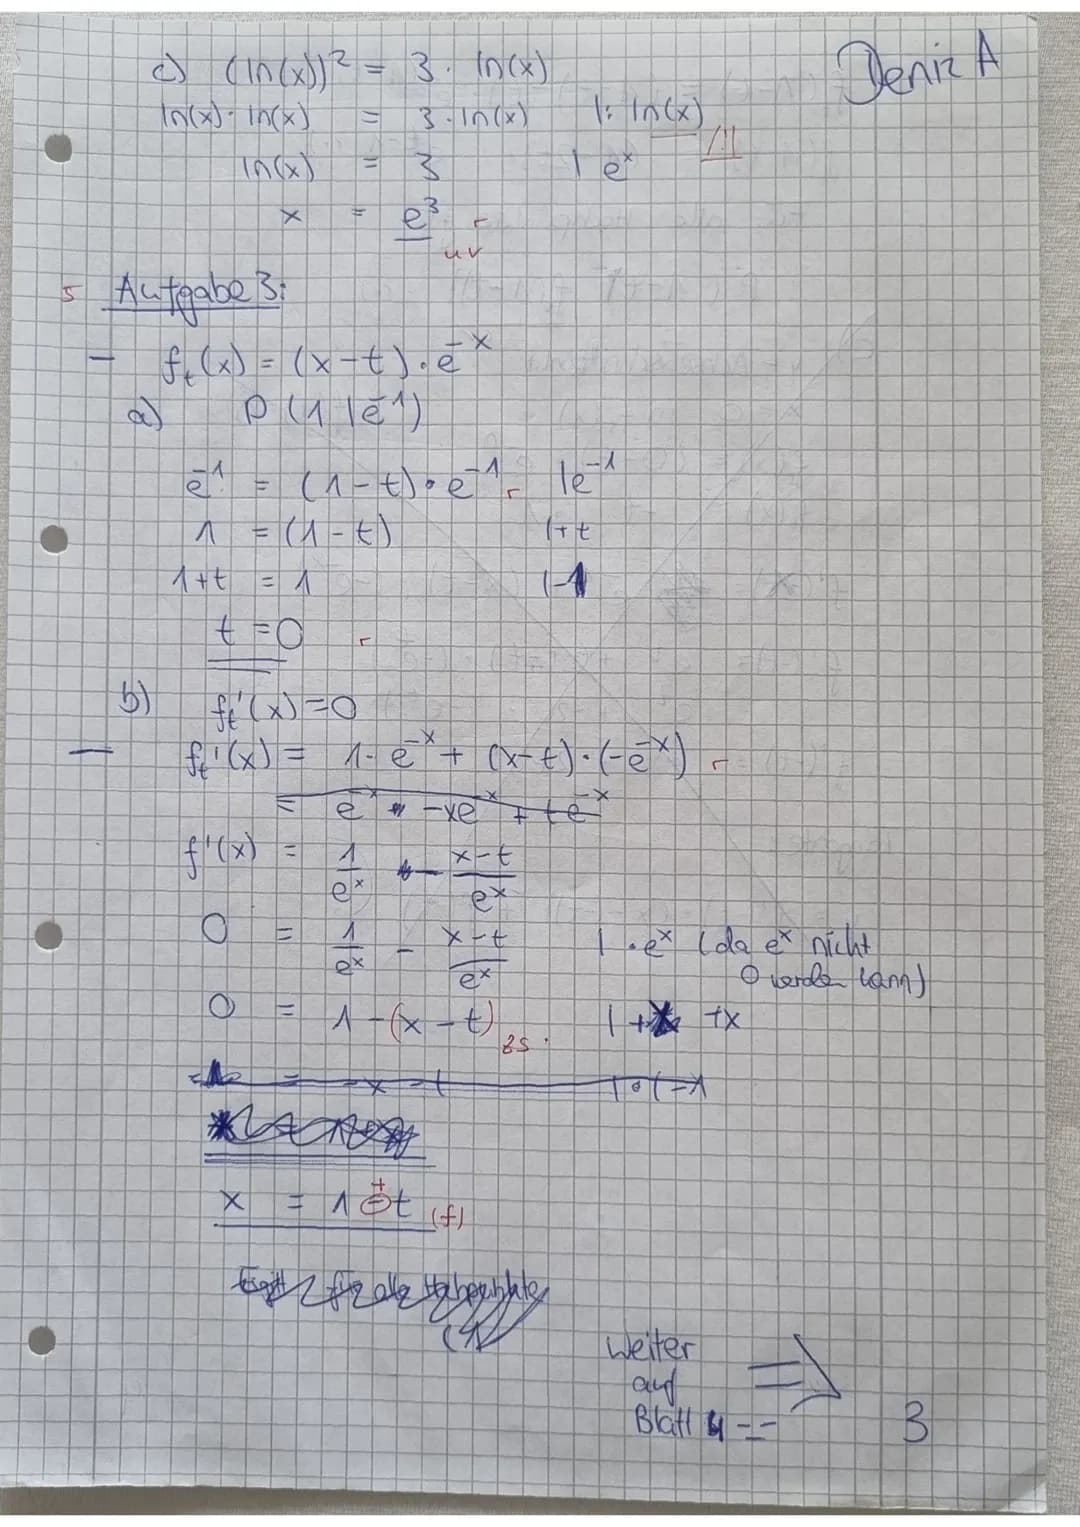 Deniz A
c) (ln(x))² = 3 · ln(x)
ln(x) · ln(x) = 3 · ln(x) |: ln(x)
ln(x) = 3 | eˣ
x = e³ r
uv
5 Aufgabe 3:
— fₜ(x) = (x-t) · e⁻ˣ
a) P (1 | e⁻¹)
e⁻¹ = (1-t) · e⁻¹ r |e⁻¹
1 = (1-t) |+t
1+t = 1 |-1
t = 0 r
b) fₜ'(x) = 0
— fₜ'(x) = 1 · e⁻ˣ + (x-t) · (-e⁻ˣ) r
= e⁻ˣ - xe⁻ˣ + te⁻ˣ
f'(x) = 1/eˣ - (x-t)/eˣ
0 = 1/eˣ - (x-t)/eˣ | · eˣ (da eˣ nicht
0 werden kann)
0 = 1 - (x-t) |+x
x = 1 - t + (f)
weiter
auf
Blatt 4 --
3